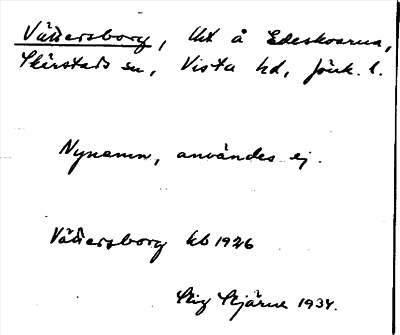 Vättersborg, lht å Edeskvarna,
Skärstads sn, Vista hd, Jönk. l.
Nynamn, användes ej.
Vättersborg kb 1926
Stig Stjärne 1934.